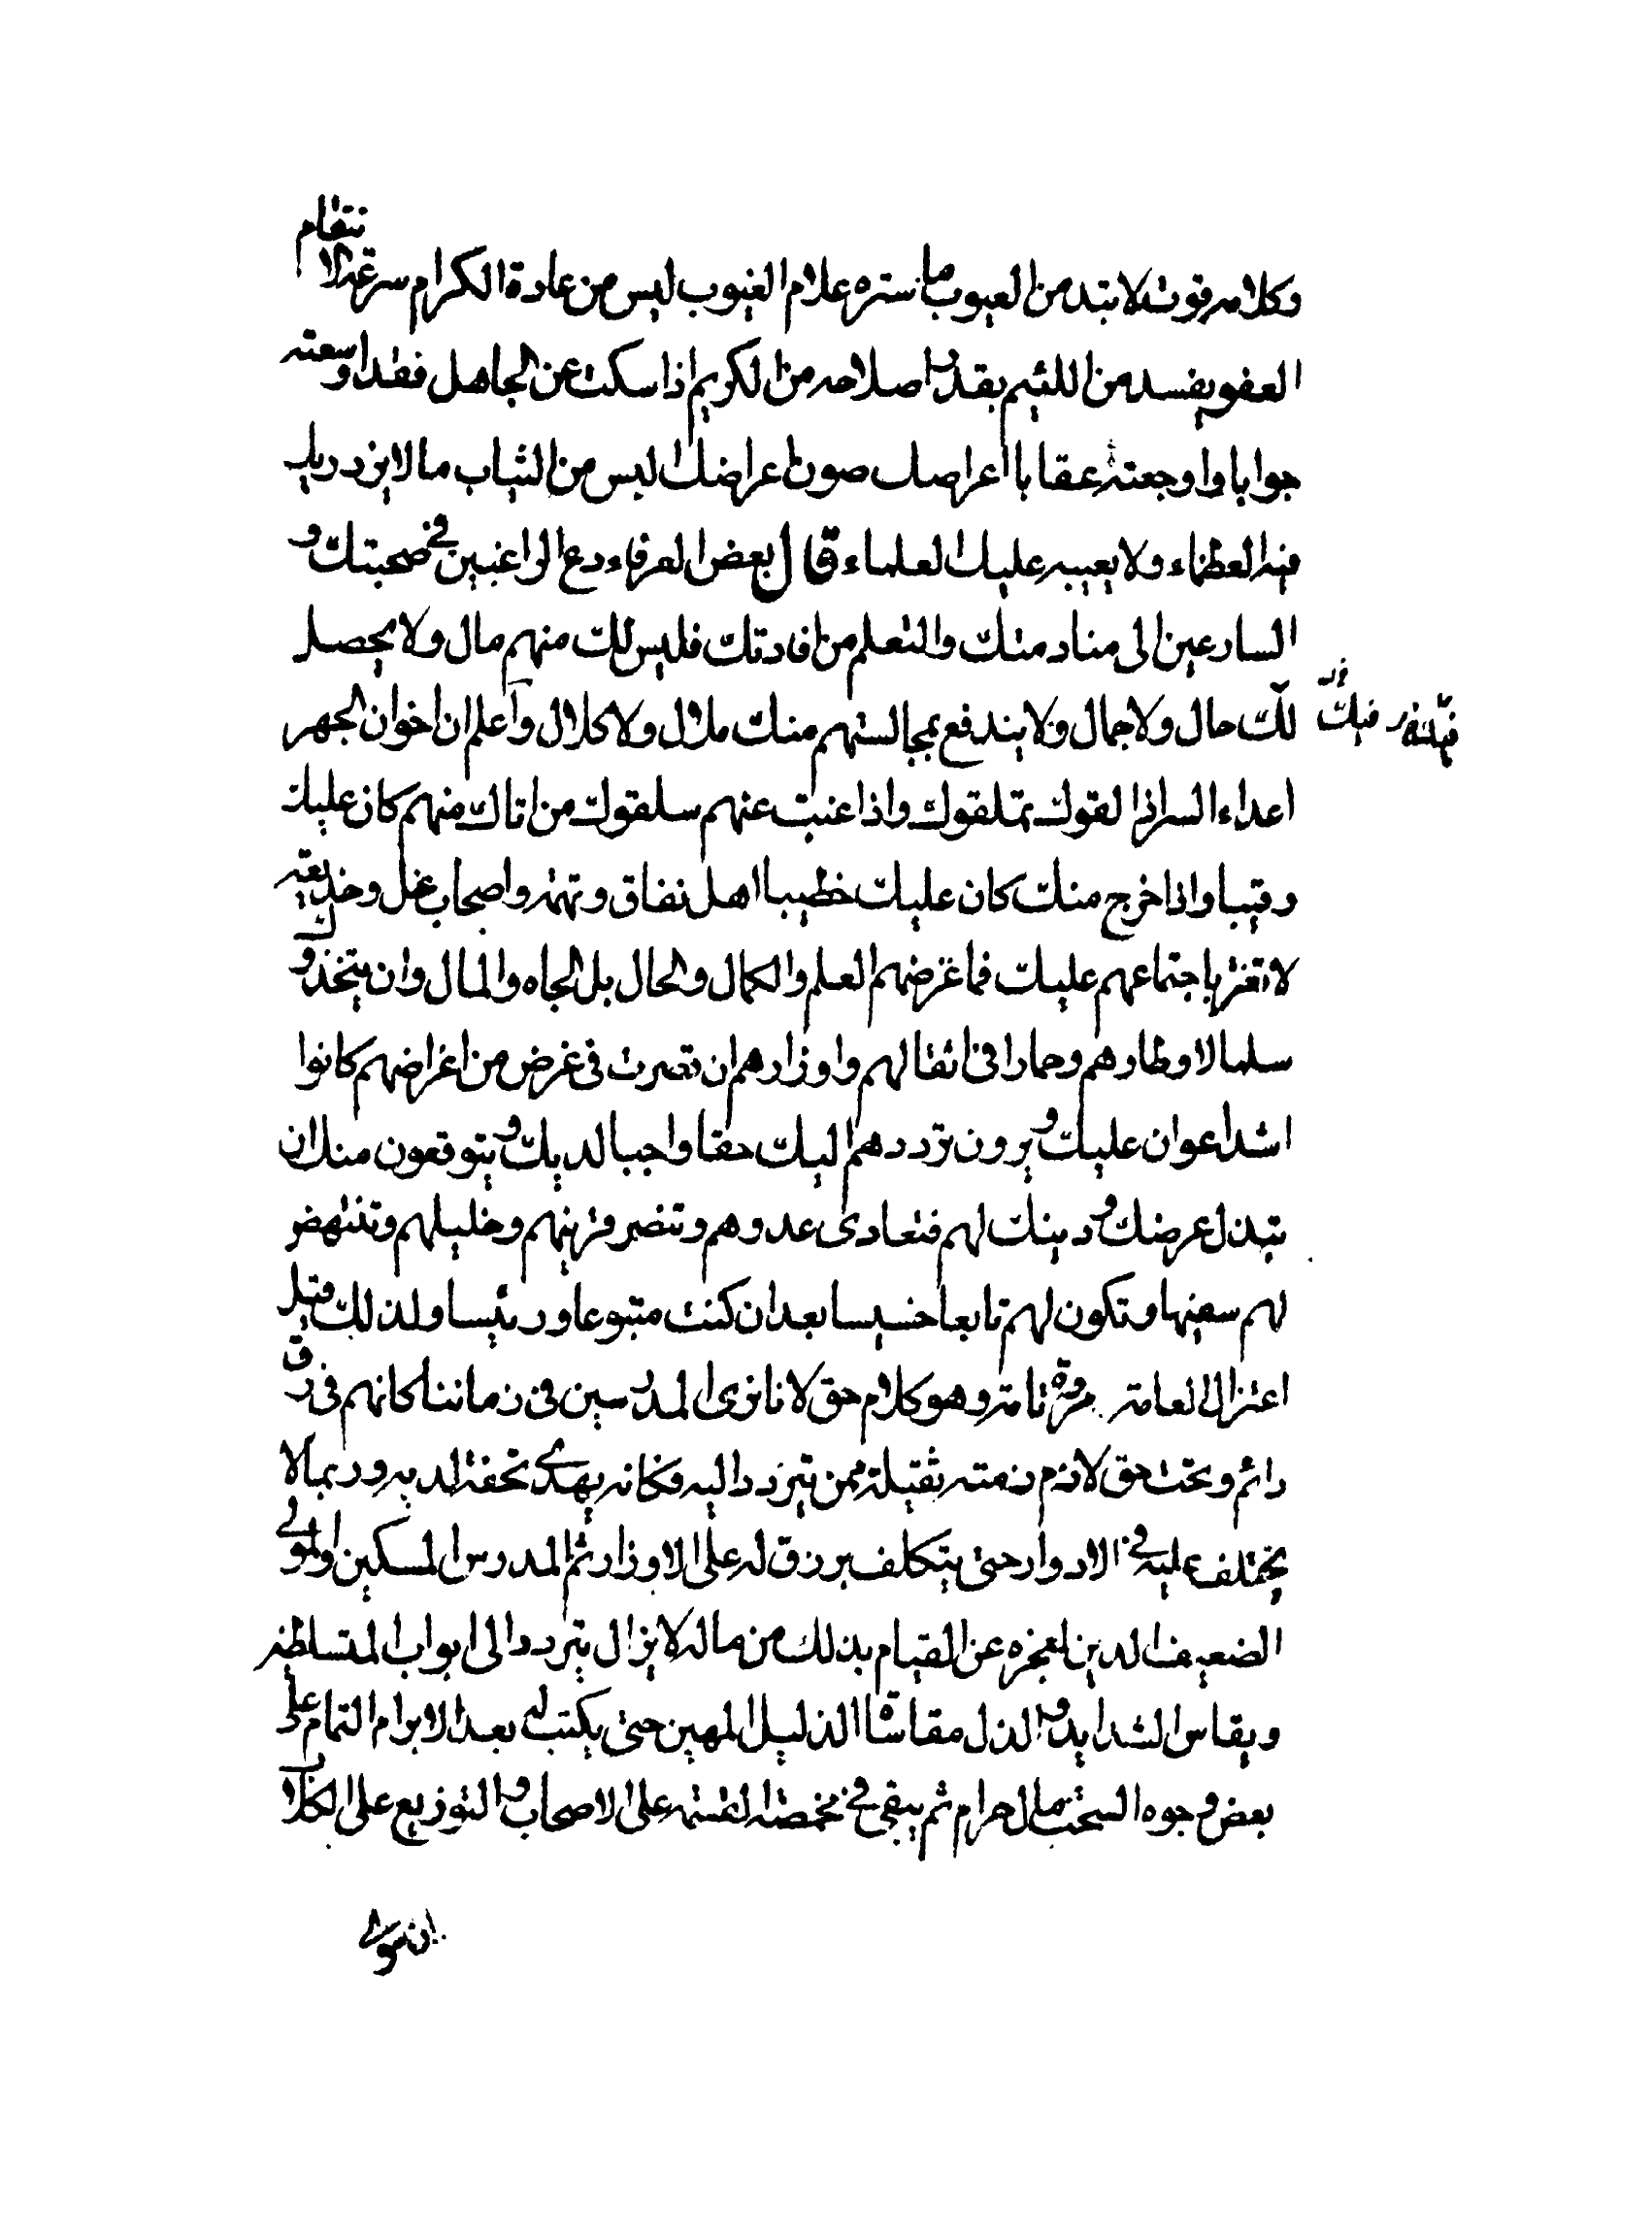 وكلامه قوت لا تبد من العيوب ما ستره علام الغيوب ليس من عادة الكرام سرعة الانتقام
العفو يفسد من اللئيم بقدر اصلاحه من الكريم اذا سكت عن الجاهل فقد اوسعته
جوابا واوجعته عقابا اعراضك صون اعراضك البس من الثياب ما لا يزدريك
فيه العظماء ولا يعيبه عليك العلماء قال بعض العرفاء دع الراغبين في صحبتك و
السارعين الى منادمتك والتعلم من افادتك فليس لك منهم مال ولا يحصل
لك حال ولا جمال ولا يندفع بمجالستهم منك ملال ولا كلال واعلم ان اخوان الجهر
اعداء السر اذا لقوك تملقوك واذا غبت عنهم سلقوك من اتاك منهم كان عليك
رقيبا واذا خرج منك كان عليك خطيبا اهل نفاق ونميمه واصحاب غل وخديعة
لا تغتر باجتماعهم عليك فما غرضهم العلم والكمال والحال بل الجاه والمال وان يتخذوك
سلما لاوطارهم وحمارا في اثقالهم واوزارهم ان قصرت في غرض من اغراضهم كانوا
اشد اعوان عليك ويرون ترددهم اليك حقا واجبا لديك ويتوقعون منك ان
تبذل عرضك ودينك لهم فتعادى عدوهم وتنصر قرينهم وخليلهم وتنتهض
لهم سفيها وتكون لهم تابعا خسيسا بعد ان كنت متبوعا ورئيسا ولذلك قيل
اعتزال العامة مروة تامة وهو كلام حق لانا نرى المدرسين في زماننا كانهم في رق
دائم وتحت حق لازم ذمته ثقيلة ممن يتردد اليه فكانه يهدى تحفة لديه وربما لا
يختلف عليه في الادوار حتى يتكلف برزق له على الاوزار ثم المدرس المسكين او المولى
الضعيف الدين لعجزه عن القيام بذلك من ماله لا يزال يتردد الى ابواب المتسلطين
ويقاس الشدايد والذل مقاساة الذليل المهين حتى يكتب له بعد الابرام التمام على
بعض وجوه السحت مال حرام ثم يبقى في مخمصة القسمة على الاصحاب والتوزيع على الكلاب
ان سوى